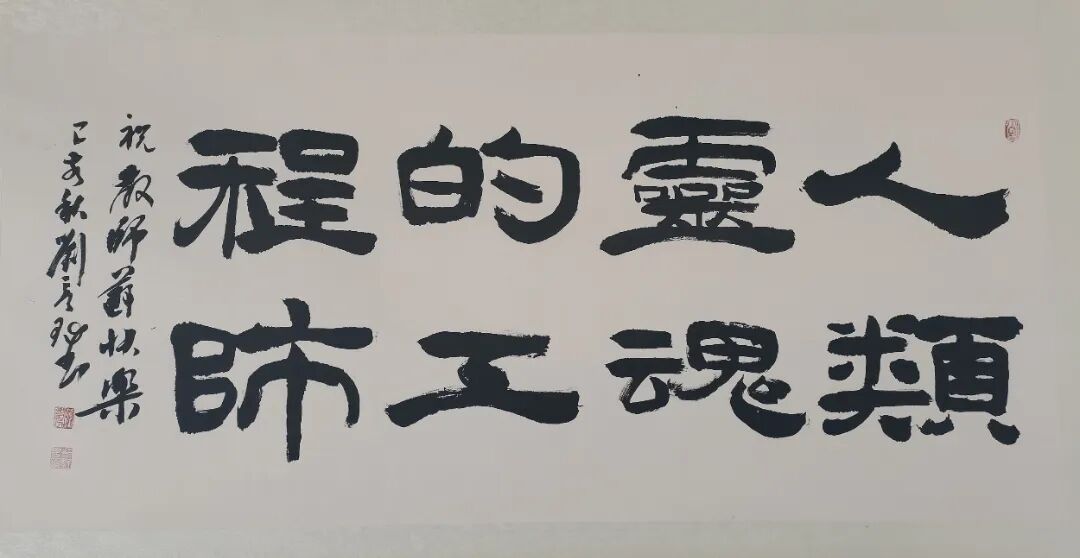 人類
靈魂
的工
程師
祝教師節快樂
己亥秋劉